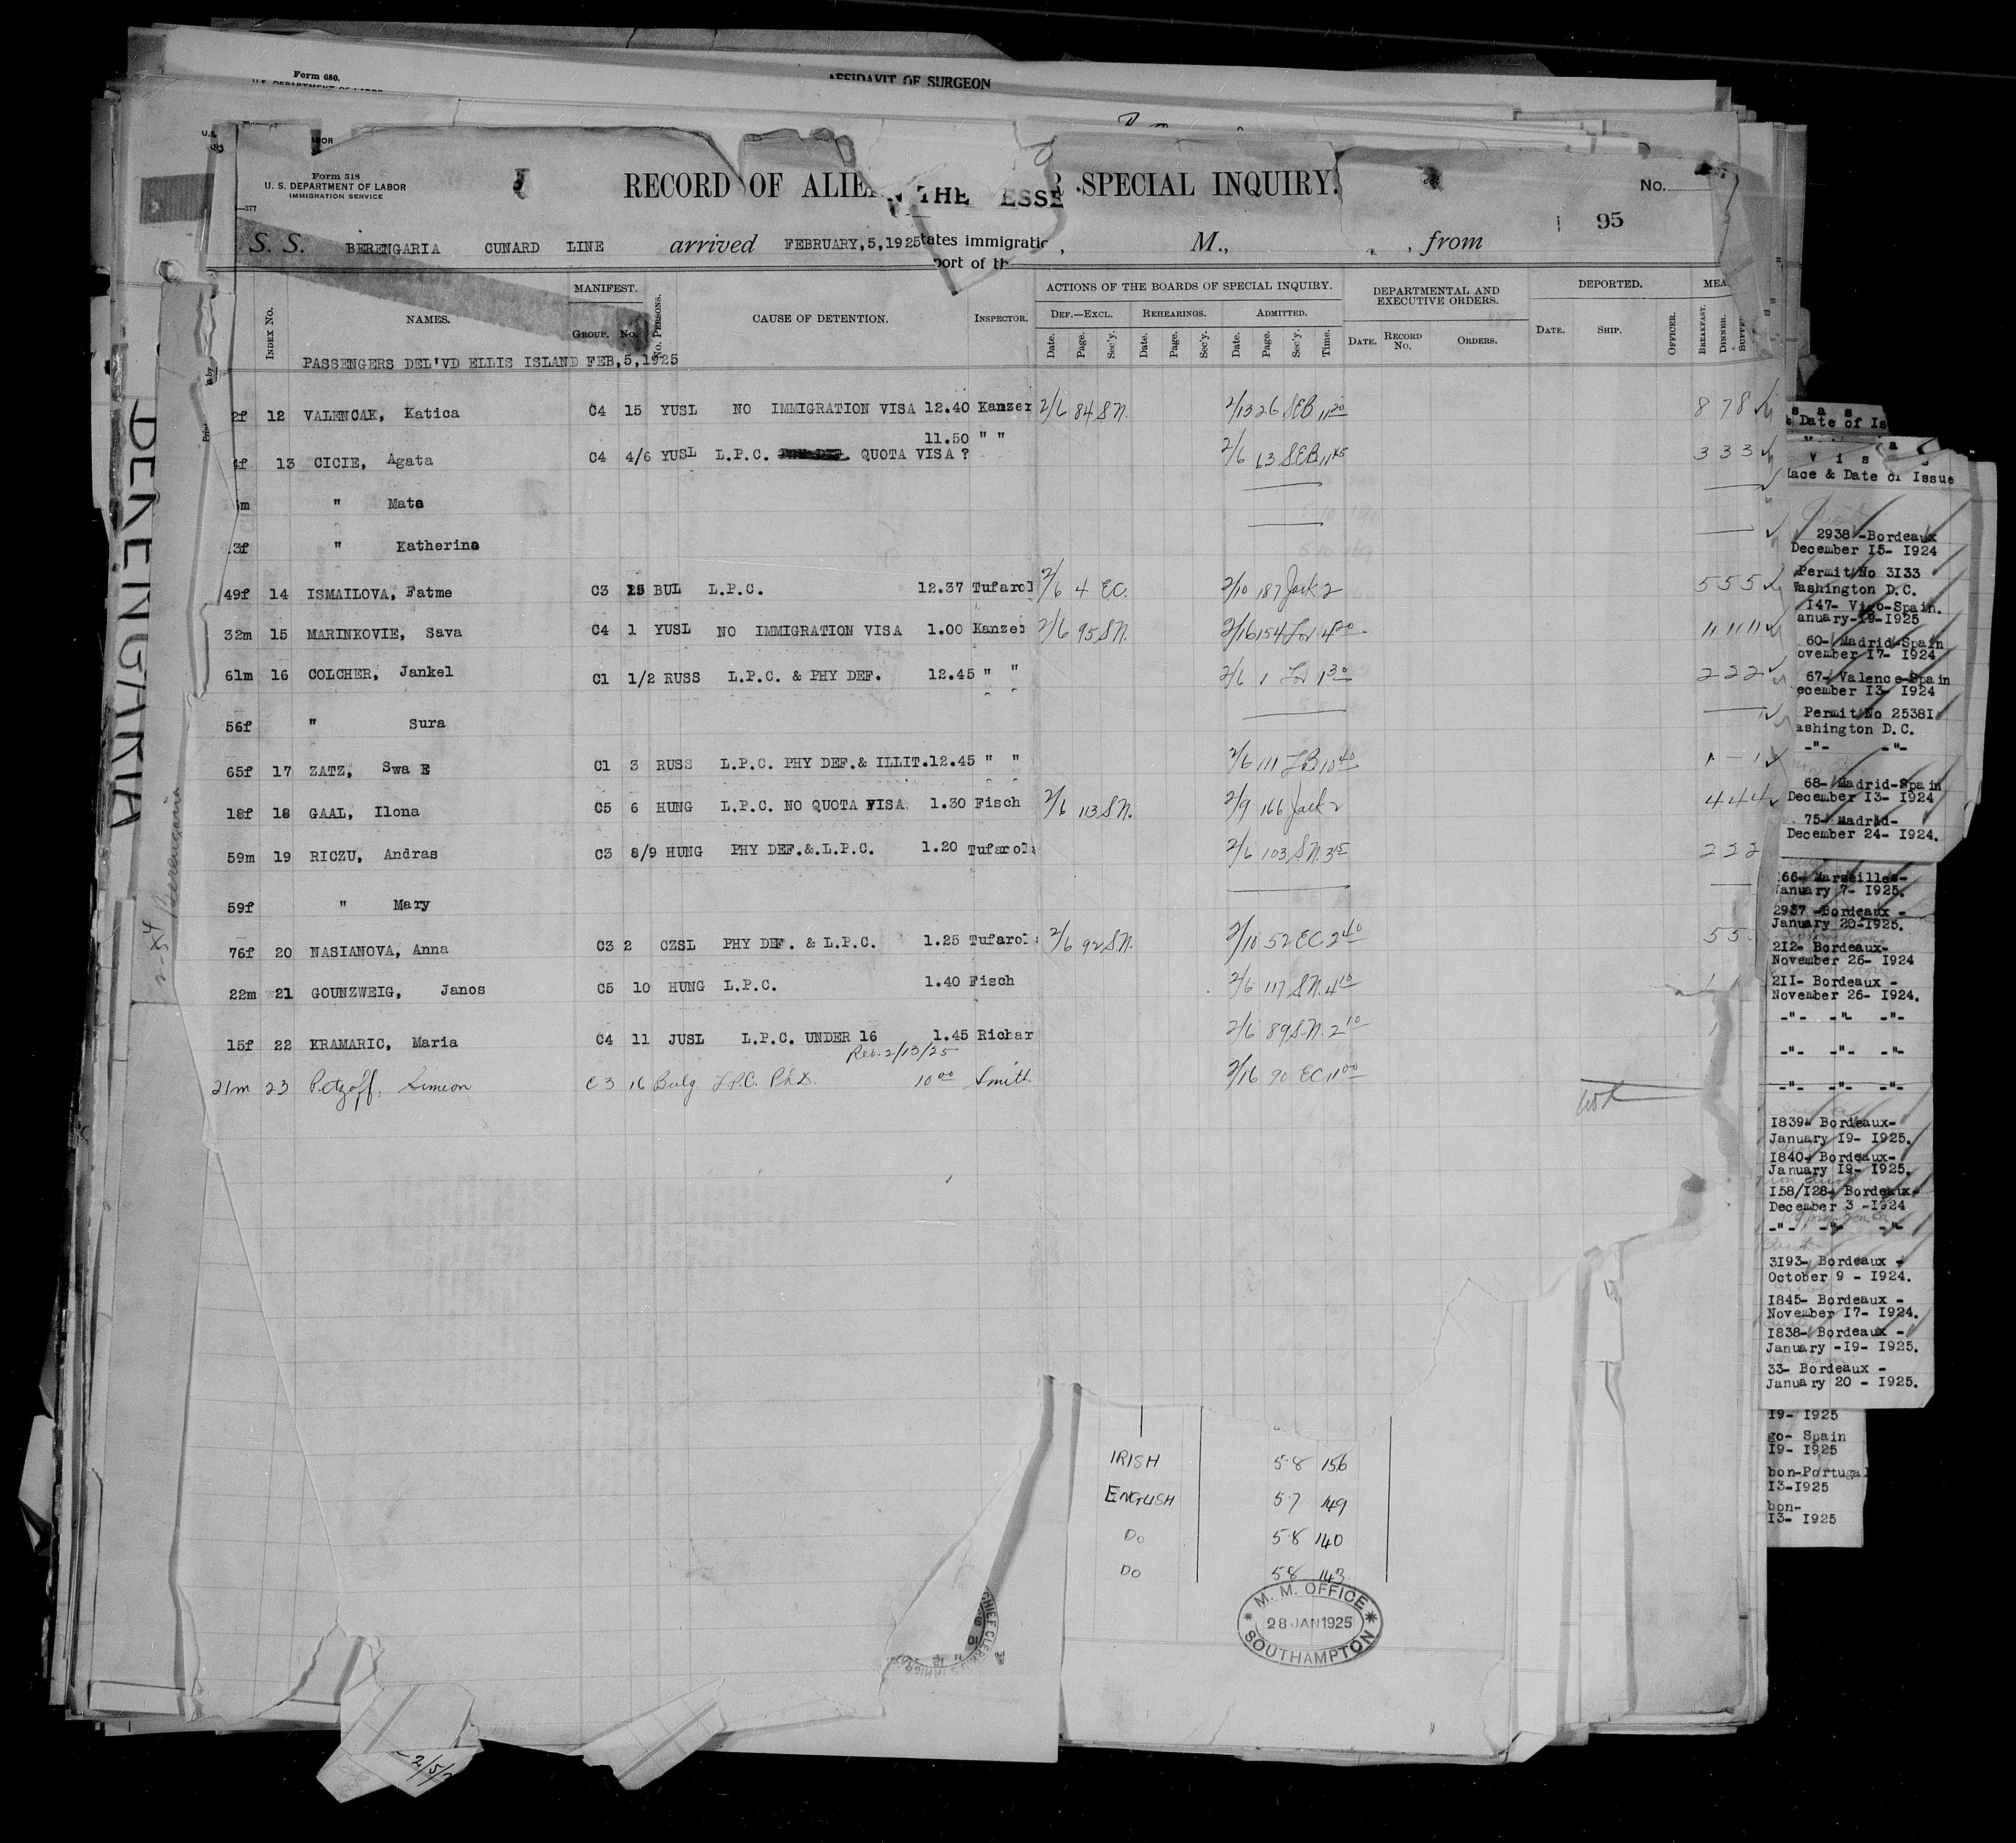 Form 680.
AFFIDAVIT OF SURGEON
Form 518
U. S. DEPARTMENT OF LABOR
IMMIGRATION SERVICE
RECORD OF ALIEN SPECIAL INQUIRY.
THE ESSE
No.
95
S. S. BERENGARIA CUNARD LINE arrived FEBRUARY,5,1925 M., from
tates immigratio
port of th
INDEX No. NAMES. MANIFEST. GROUP. No. No. PERSONS. CAUSE OF DETENTION. INSPECTOR. ACTIONS OF THE BOARDS OF SPECIAL INQUIRY. DEPARTMENTAL AND EXECUTIVE ORDERS. DEPORTED.
DEF.—EXCL. REHEARINGS. ADMITTED.
Date. Page. Sec'y. Date. Page. Sec'y. Date. Page. Sec'y. Time. DATE. RECORD No. ORDERS. DATE. SHIP. OFFICER. BREAKFAST. DINNER.
PASSENGERS DEL'VD ELLIS ISLAND FEB,5,1925
2f 12 VALENCAK, Katica C4 15 YUSL NO IMMIGRATION VISA 12.40 Kanzer 2/6 84 S.N. 2/13 26 SEB 11 20 8 7 8
11.50 " "
4f 13 CICIE, Agata C4 4/6 YUSL L.P.C. QUOTA VISA ? 2/6 63 SEB 11 45 3 3 3
m " Mate
3f " Katherine
49f 14 ISMAILOVA, Fatme C3 BUL L.P.C. 12.37 Tufarol 2/6 4 EC. 2/10 187 Jack 2 5 5 5
32m 15 MARINKOVIE, Sava C4 1 YUSL NO IMMIGRATION VISA 1.00 Kanze 2/6 95 S.N. 2/16 154 11 11 11
61m 16 COLCHER, Jankel C1 1/2 RUSS L.P.C. & PHY DEF. 12.45 " " 2/6 1 1 30 2 2 2
56f " Sura
65f 17 ZATZ, Swa E C1 3 RUSS L.P.C. PHY DEF.& ILLIT.12.45 " " 2/6 111 10 40 1 - 1
18f 18 GAAL, Ilona C5 6 HUNG L.P.C. NO QUOTA VISA 1.30 Fisch 2/6 113 S.N. 2/9 166 Jack 2 4 4 4
59m 19 RICZU, Andras C3 8/9 HUNG PHY DEF.&.L.P.C. 1.20 Tufarola 2/6 103 S.N. 3 15 2 2 2
59f " Mary
76f 20 NASIANOVA, Anna C3 2 CZSL PHY DEF. & L.P.C. 1.25 Tufarol 2/6 92 S.N. 2/10 52 EC 2 40 5 5
22m 21 GOUNZWEIG, Janos C5 10 HUNG L.P.C. 1.40 Fisch 2/6 117 S.N. 4 10
15f 22 KRAMARIC, Maria C4 11 JUSL L.P.C. UNDER 16 1.45 Richar 2/6 89 S.N. 2 10 1
Rec. 2/13/25
21m 23 Petzoff, Simeon C3 16 Bulg L.P.C. Ph.D. 10 00 Smith 2/16 90 EC 11 00
BERENGARIA
2-54 Berengaria
& Date of Is
V i s a
lace & Date of Issue
2938 -Bordeaux
December 15- 1924
Permit No 3133
Washington D.C.
147- Vigo-Spain.
anuary-19-1925
60- Madrid-Spain
ovember 17- 1924
67- Valence-Spain
ecember 13- 1924
Permit No 25381
ashington D.C.
-"- -"-
68- Madrid-Spain
December 13- 1924
75- Madrid-
December 24- 1924.
166- Marseilles-
January 7- 1925.
2937 -Bordeaux -
January 20-1925.
212- Bordeaux-
November 26- 1924
211- Bordeaux -
November 26- 1924.
-"- -"- -"-
-"- -"- -"-
-"- -"- -"-
1839- Bordeaux-
January 19- 1925.
1840- Bordeaux-
January 19- 1925.
158/128- Bordeaux-
December 3 -1924
-"- -"- -"-
3193- Bordeaux -
October 9 - 1924.
1845- Bordeaux -
November 17- 1924.
1838- Bordeaux -
January -19- 1925.
33- Bordeaux -
January 20 - 1925.
19- 1925
go- Spain
19- 1925
bon-Portugal
13-1925
bon-
13- 1925
IRISH 5.8 156
ENGLISH 5.7 149
Do 5.8 140
Do 5.8 143
M. M. OFFICE
28 JAN 1925
SOUTHAMPTON
CHIEF CLERK
2/5/